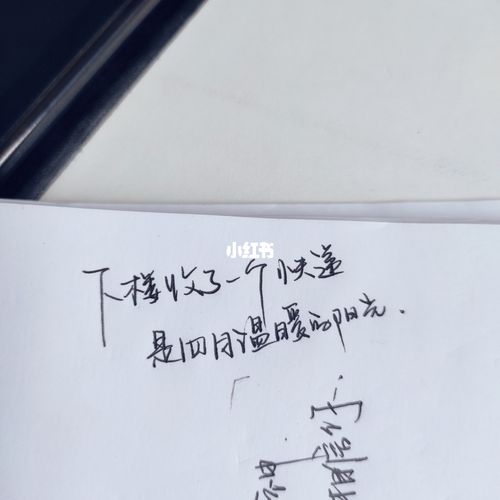 下楼收了一个快递
是四月温暖的阳光.
小红书